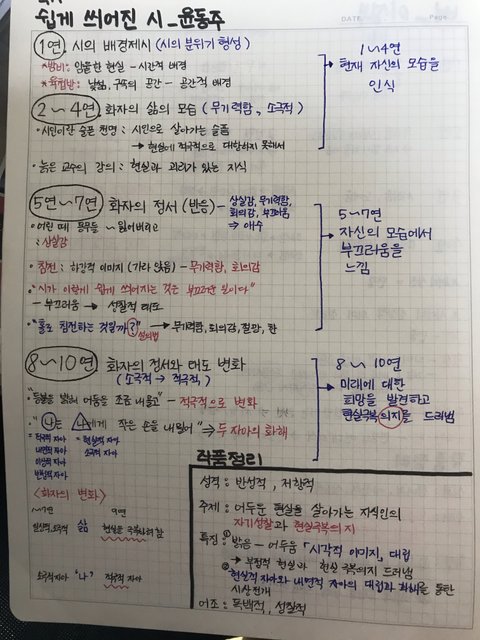 쉽게 씌어진 시_윤동주
DATE Page
1연. 시의 배경제시 (시의 분위기 형성)
*밤비: 암울한 현실 - 시간적 배경
*육첩방: 낯섦, 구속의 공간 - 공간적 배경
1~4연
현재 자신의 모습을
인식
2~4연 화자의 삶의 모습 (무기력함, 소극적)
·시인이란 슬픈 천명: 시인으로 살아가는 슬픔
→ 현실에 적극적으로 대항하지 못해서
·늙은 교수의 강의: 현실과 괴리가 있는 지식
5연~7연 화자의 정서 (반응) - 상실감, 무기력함,
회의감, 부끄러움
⇒ 애수
·어린 때 동무들 ~ 잃어버리고
: 상실감
·침전: 하강적 이미지 (가라앉음) - 무기력함, 회의감
·"시가 이렇게 쉽게 씌어지는 것은 부끄러운 일이다"
- 부끄러움 → 성찰적 태도
·"홀로 침전하는 것일까?" → 무기력함, 회의감, 절망, 한
설의법
5~7연
자신의 모습에서
부끄러움을
느낌
8~10연 화자의 정서와 태도 변화
(소극적 → 적극적)
·"등불을 밝혀 어둠을 조금 내몰고" - 적극적으로 변화
·"나는 나에게 작은 손을 내밀어" ⇒ 두 자아의 화해
= 적극적 자아
내면적 자아
이상적 자아
반성적 자아
= 현실적 자아
소극적 자아
8~10연
미래에 대한
희망을 발견하고
현실극복의지를 드러냄
<화자의 변화>
1~7연 9연
삶 현실을 극복하려 함
소극적 자아 "나" 적극적 자아
작품정리
성격: 반성적, 저항적
주제: 어두운 현실을 살아가는 지식인의
자기성찰과 현실극복의 지
특징: ① 밝음 - 어두움 「시각적 이미지」 대립
→ 부정적 현실과 현실 극복의지 드러냄
② 현실적 자아와 내면적 자아의 대립과 화해를 통한
시상전개
어조: 독백적, 성찰적